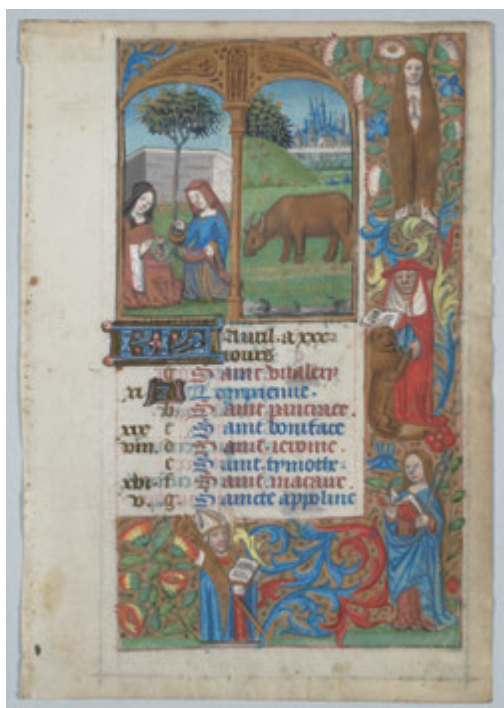 Auril. a xxx.
iours
g S aint valery
xi A egipcienne.
b S aint pancrace.
xix c S aint boniface
viii. d S aint ierome.
e S aint tymothe.
xvi. f S aint macaire.
v. g. S aincte appoline